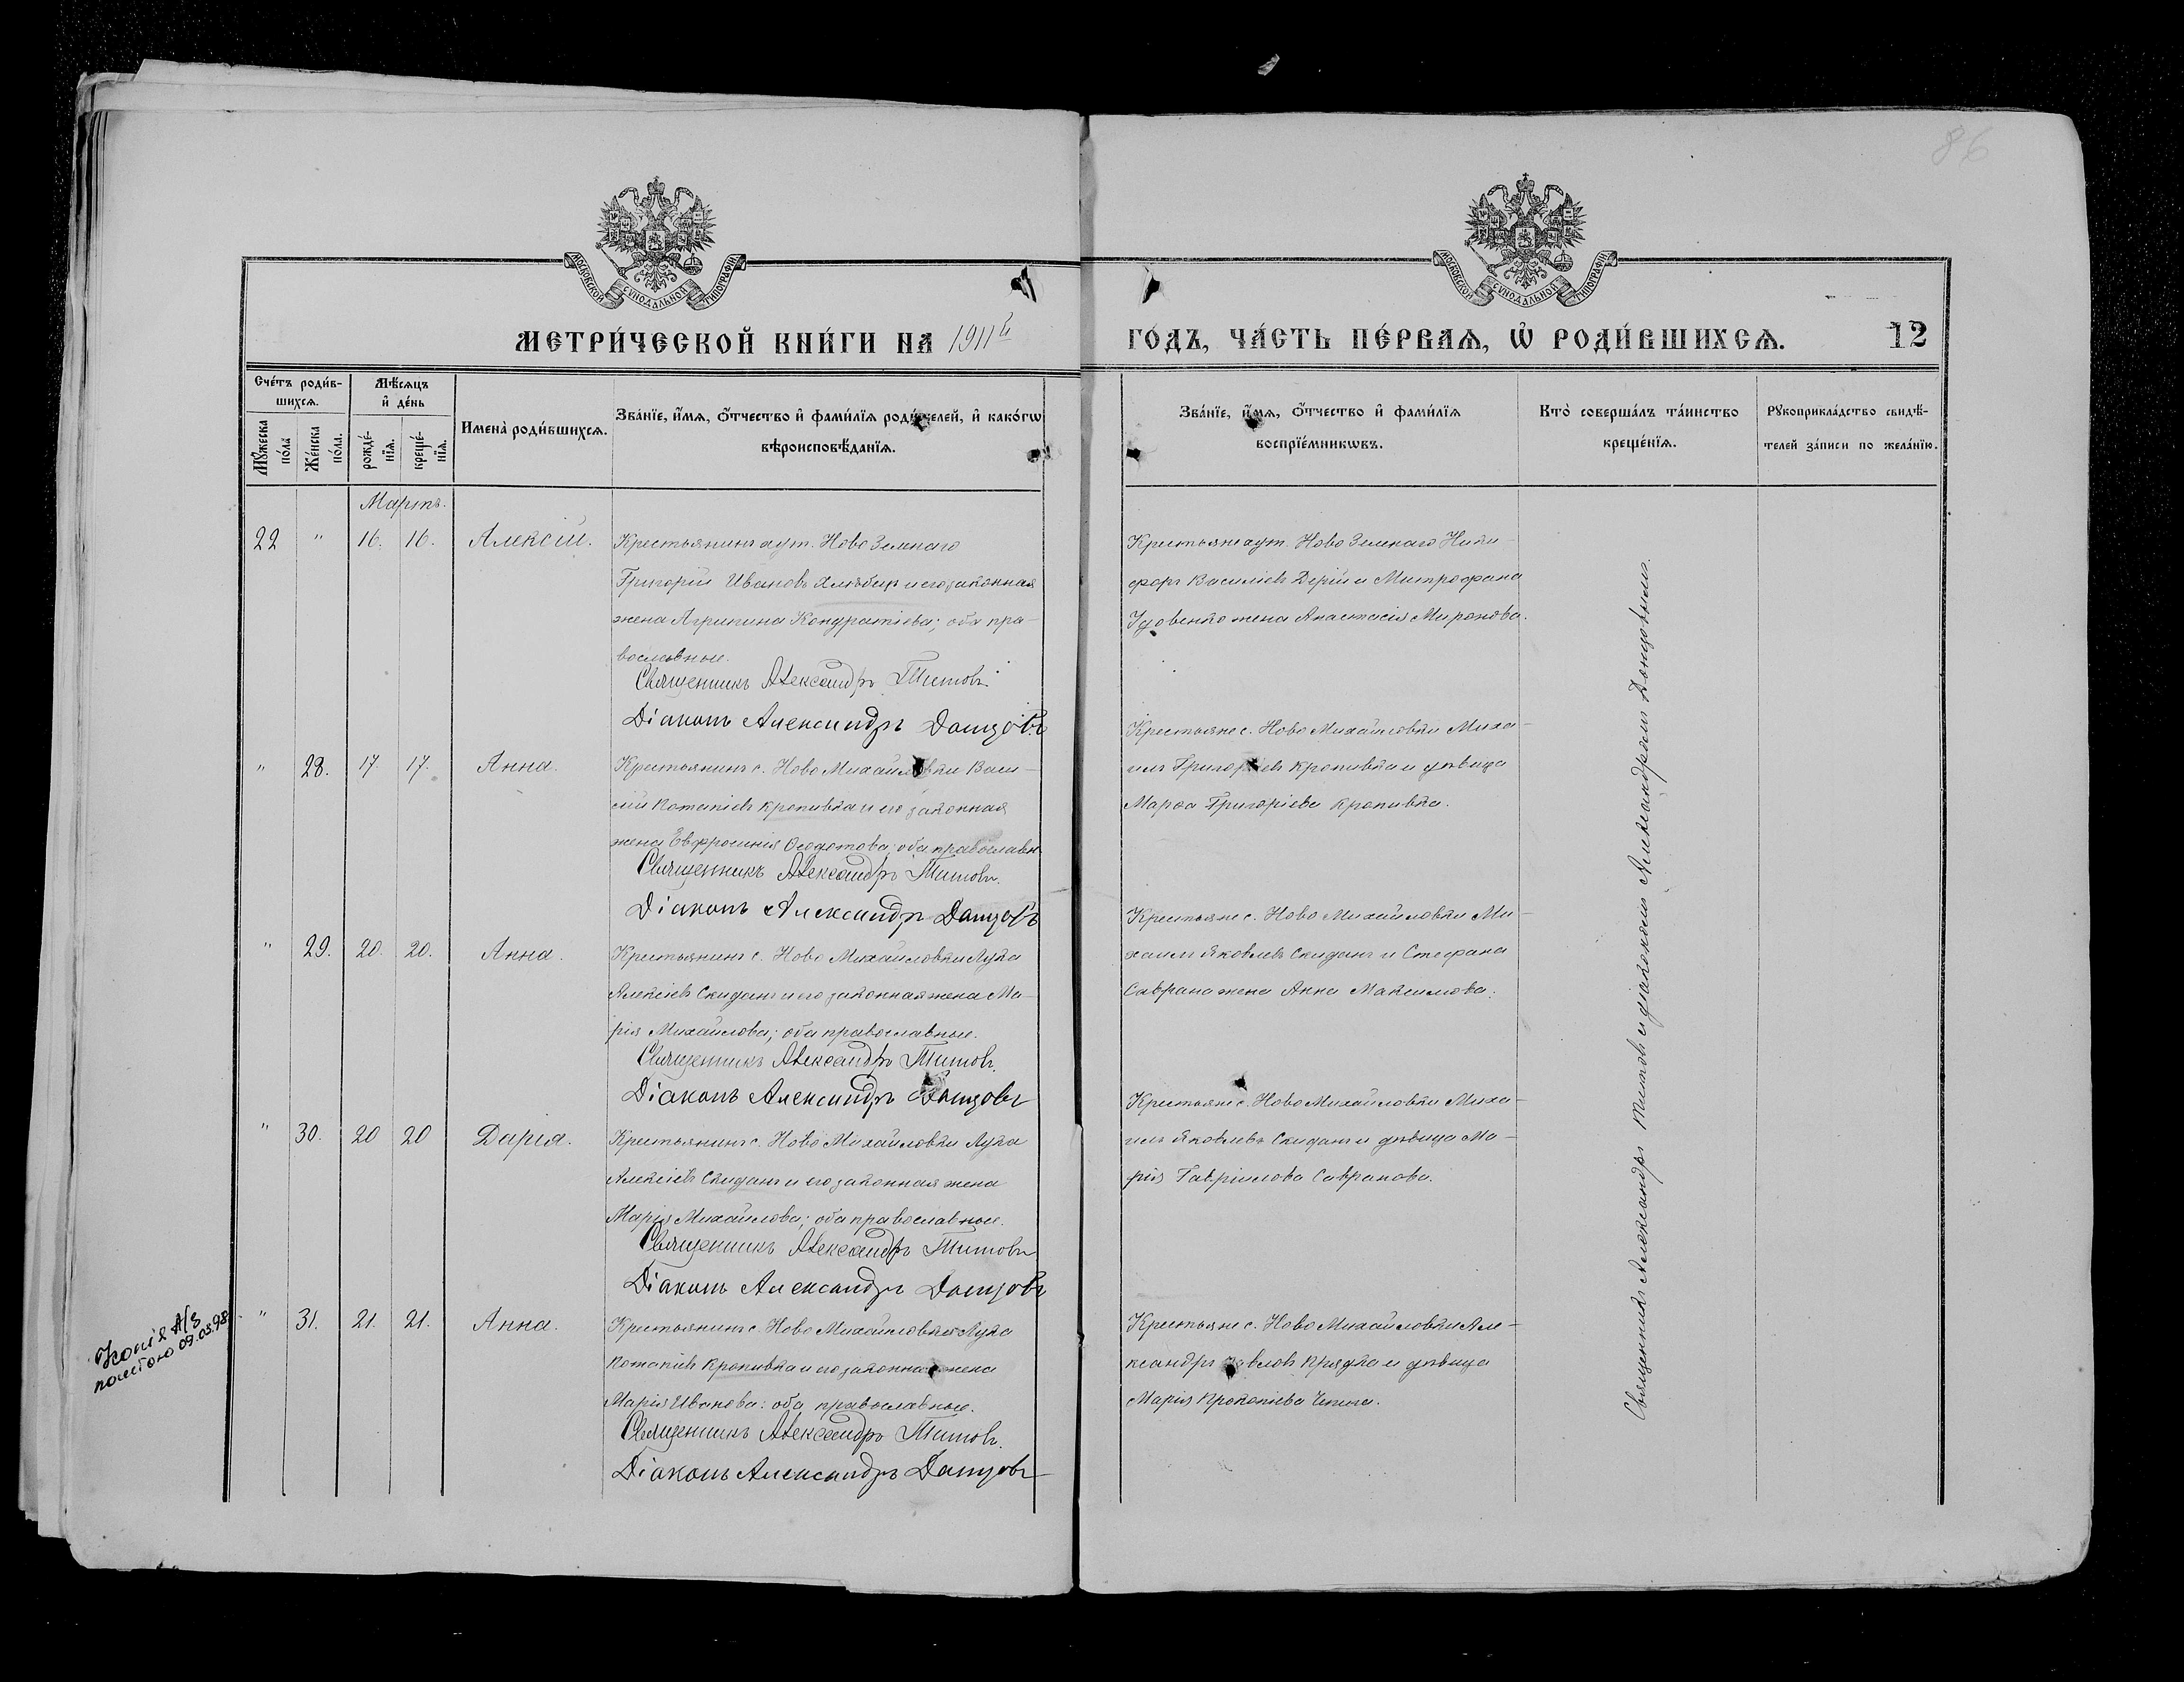 86
МОСКОВСКОЙ СѴНОДАЛЬНОЙ ТИПОГРАФІИ
МОСКОВСКОЙ СѴНОДАЛЬНОЙ ТИПОГРАФІИ
МЕТРИ́ЧЕСКОЙ КНИ́ГИ НА 1911й
ГО́ДЪ, ЧА́СТЬ ПЕ́РВАѦ, Ѡ҆ РОДИ́ВШИХСѦ. 12
Сче́тъ роди́в-
шихсѧ.
Мꙋ́жеска
по́ла
Же́нска
по́ла.
Мѣ́сѧцъ
и҆ де́нь
рожде́-
нїѧ.
креще́-
нїѧ.
Имена̀ роди́вшихсѧ.
Зва́нїе, и҆́мѧ, о҆́тчество и҆ фами́лїѧ роди́телей, и҆ како́гѡ
вѣроисповѣ́данїѧ.
Зва́нїе, и҆́мѧ, о҆́тчество и҆ фами́лїѧ
воспрїе́мникѡвъ.
Кто̀ соверша́лъ та́инство
креще́нїѧ.
Рꙋкоприкла́дство свидѣ́-
телей за́писи по жела́нїю.
Мартъ.
22 " 16. 16. Алексій.
Крестьянинъ хут. Ново Земнаго
Григорій Ивановъ Хлѣбик и его законная
жена Агрипина Кондратіева; оба пра-
вославные.
Священникъ Александръ Титовъ.
Діаконъ Александръ Донцовъ
Крестьяне хут. Ново Земнаго Ники-
форъ Василіевъ Дерій и Митрофана
Удовенко жена Анастасія Миронова.
" 28. 17 17. Анна.
Крестьянинъ с. Ново Михайловки Васи-
лій Потапіевъ Кропивка и его законная
жена Евфросинія Ѳеодотова; оба православн.
Священникъ Александръ Титовъ.
Діаконъ Александръ Донцовъ
Крестьяне с. Ново Михайловки Миха-
илъ Григоріевъ Кропивка и дѣвица
Марѳа Григоріева Кропивка.
" 29. 20. 20. Анна.
Крестьянинъ с. Ново Михайловки Лука
Алексіевъ Скиданъ и его законная жена Ма-
рія Михайлова; оба православные.
Священникъ Александръ Титовъ.
Діаконъ Александръ Донцовъ
Крестьяне с. Ново Михайловки Ми-
хаилъ Яковлевъ Скиданъ и Стефана
Саврана жена Анна Максимова.
" 30. 20 20 Дарія.
Крестьянинъ с. Ново Михайловки Лука
Алексіевъ Скиданъ и его законная жена
Марія Михайлова; оба православные.
Священникъ Александръ Титовъ
Діаконъ Александръ Донцовъ
Крестьяне с. Ново Михайловки Миха-
илъ Яковлевъ Скиданъ и дѣвица Ма-
рія Гавріилова Савранова.
" 31. 21. 21. Анна.
Крестьянинъ с. Ново Михайловки Лука
Потапіевъ Кропивка и его законная жена
Марія Иванова: оба православные.
Священникъ Александръ Титовъ.
Діаконъ Александръ Донцовъ
Крестьяне с. Ново Михайловки Але-
ксандръ Павловъ Прядка и дѣвица
Марія Прокопіева Чепига.
Священникъ Александръ Титовъ и діакономъ Александромъ Донцовымъ.
Копія А/З
поштою 09.03.98